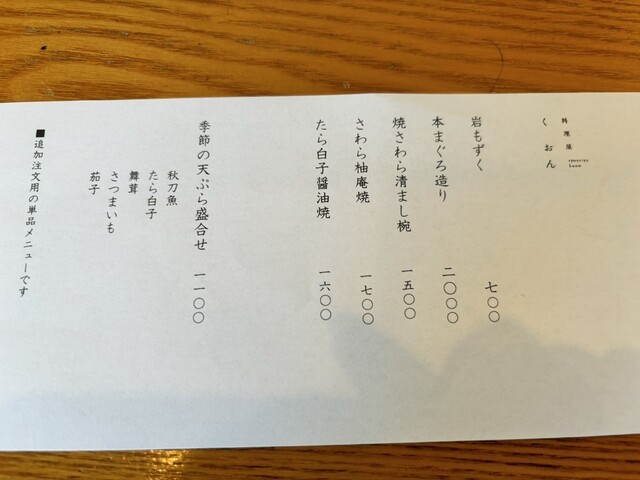 料理屋
くおん
岩もずく 七〇〇
本まぐろ造り 二〇〇〇
焼さわら清まし椀 一五〇〇
さわら柚庵焼 一七〇〇
たら白子醤油焼 一六〇〇
季節の天ぷら盛合せ 一一〇〇
秋刀魚
たら白子
舞茸
さつまいも
茄子
■追加注文用の単品メニューです